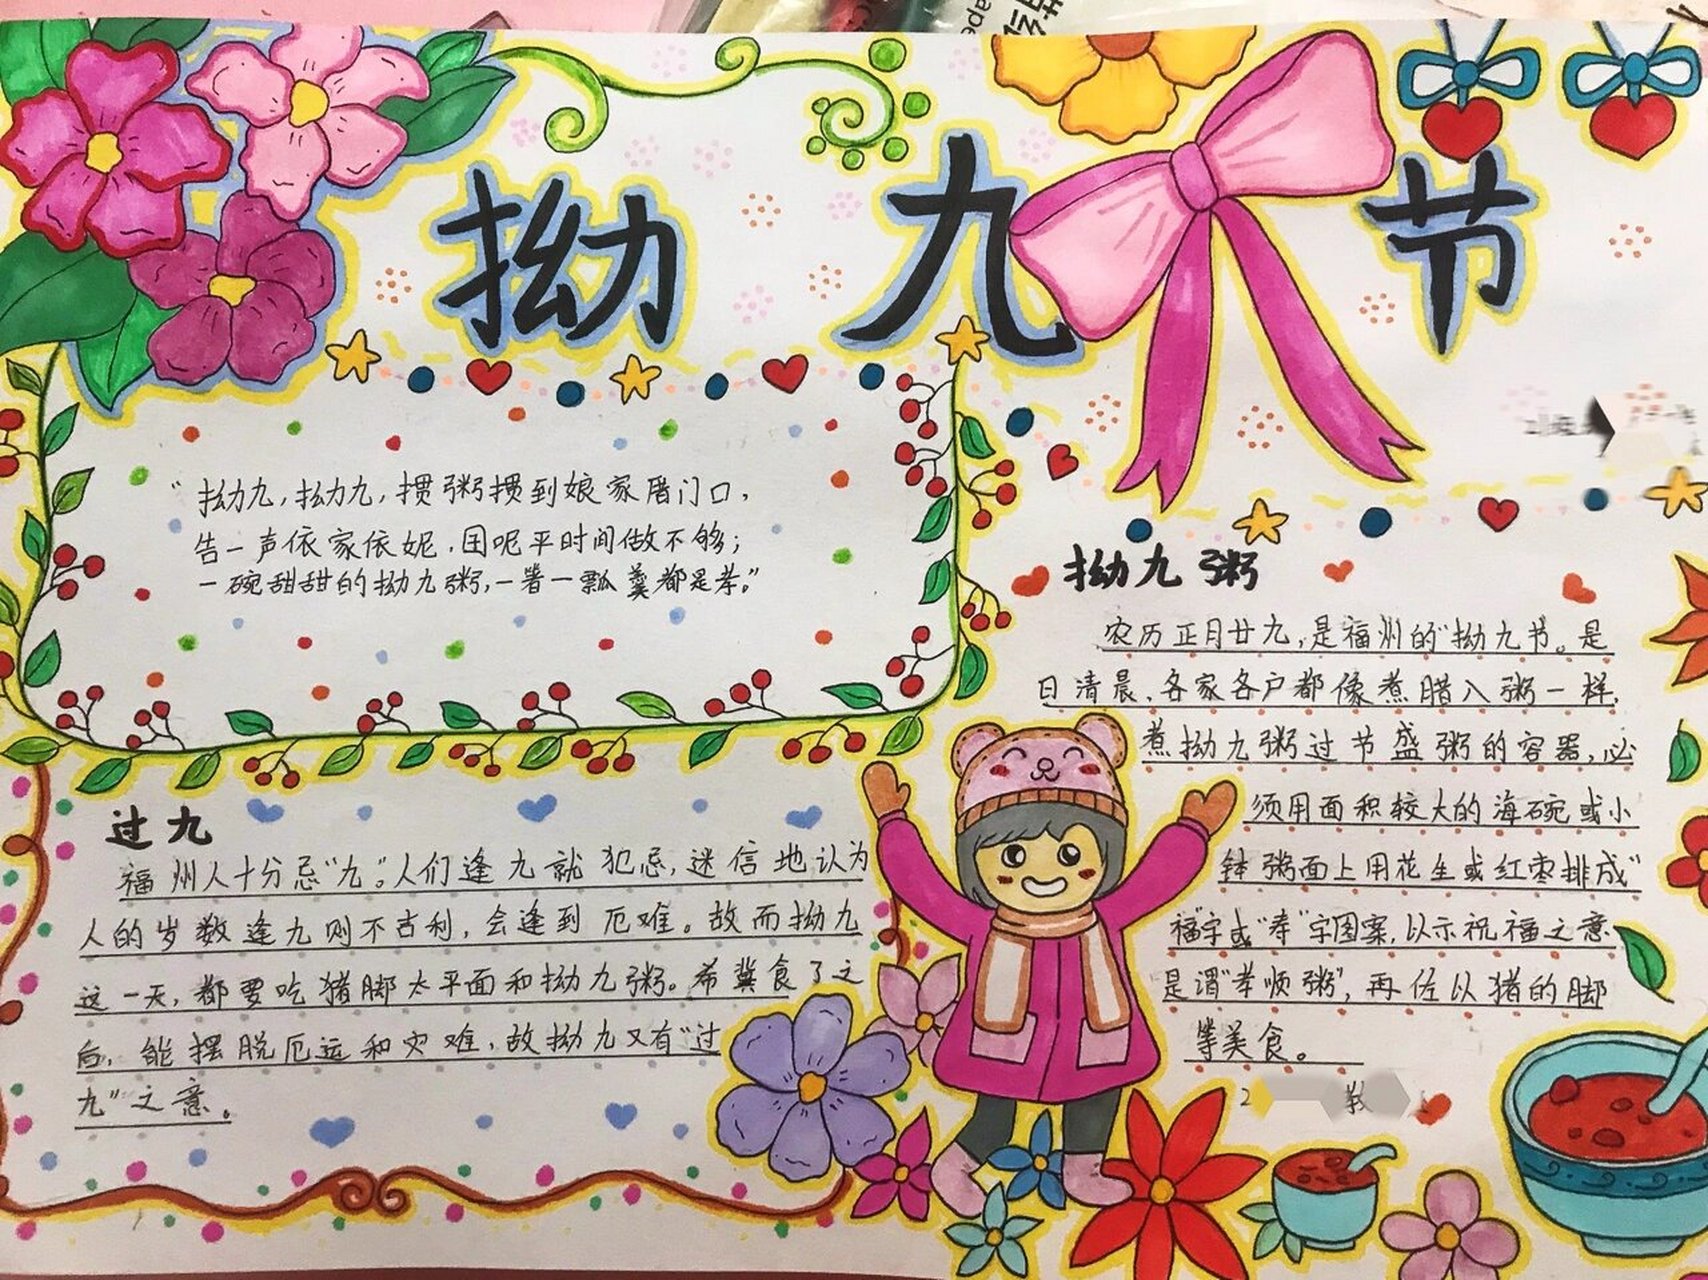 拗九节
"拗九,拗九,掼粥掼到娘家厝门口,
告一声依家依妮,囯呢平时间做不够;
一碗甜甜的拗九粥,一箸一瓢羹都是孝。"
过九
福州人十分忌"九"。人们逢九就犯忌,迷信地认为
人的岁数逢九则不吉利,会逢到厄难。故而拗九
这一天,都要吃猪脚太平面和拗九粥。希冀食了之
后,能摆脱厄运和灾难,故拗九又有"过
九"之意。
拗九粥
农历正月廿九,是福州的"拗九节。是
日清晨,各家各户都像煮腊八粥一样,
煮拗九粥过节盛粥的容器,必
须用面积较大的海碗或小
钵粥面上用花生或红枣排成"
福"字或"寿"字图案,以示祝福之意
是谓"孝顺粥",再佐以猪的脚
等美食。